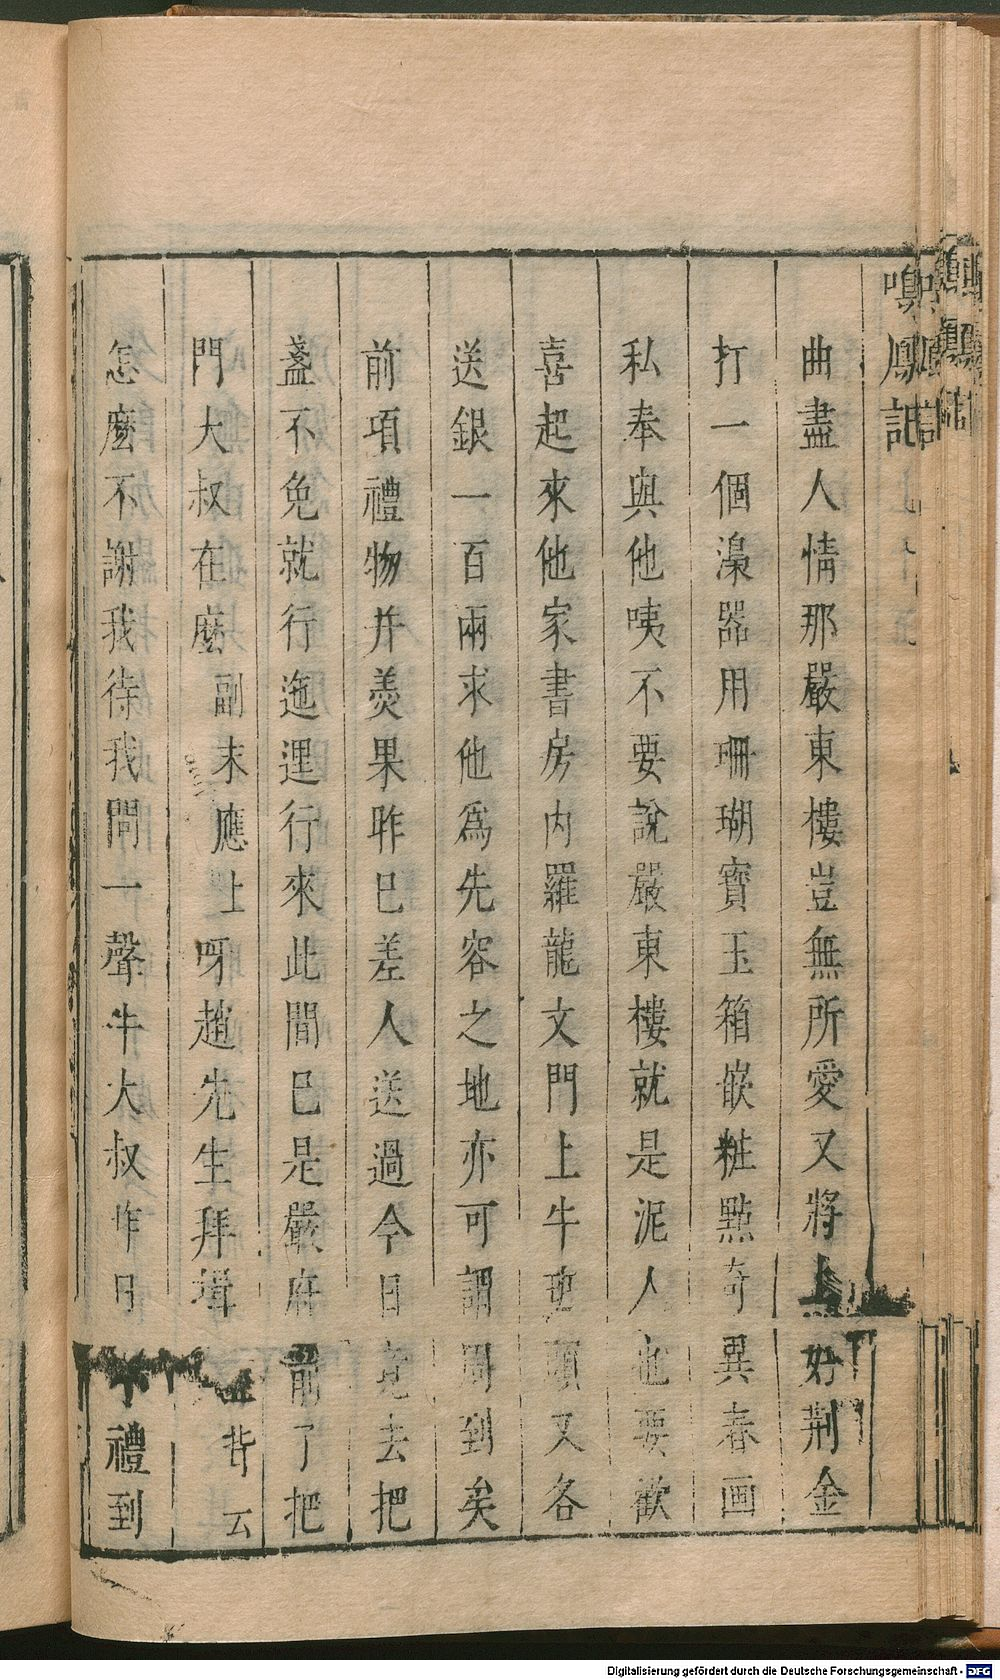 鳳記
曲盡人情那嚴東樓豈無所愛又將上好荆金
打一個溺器用珊瑚寶玉箱嵌粧點奇異春画
私奉與他咦不要說嚴東樓就是泥人也要歡
喜起來他家書房内羅龍文門上牛班頭又各
送銀一百兩求他爲先容之地亦可謂周到矣
前項禮物并羮果昨已差人送過今日竟去把
盞不免就行迤逦行來此間已是嚴府前了把
門大叔在麽副末應上呀趙先生拜揖背云
怎麽不謝我待我問一聲牛大叔昨日小禮到
Digitalisierung gefördert durch die Deutsche Forschungsgemeinschaft - DFG